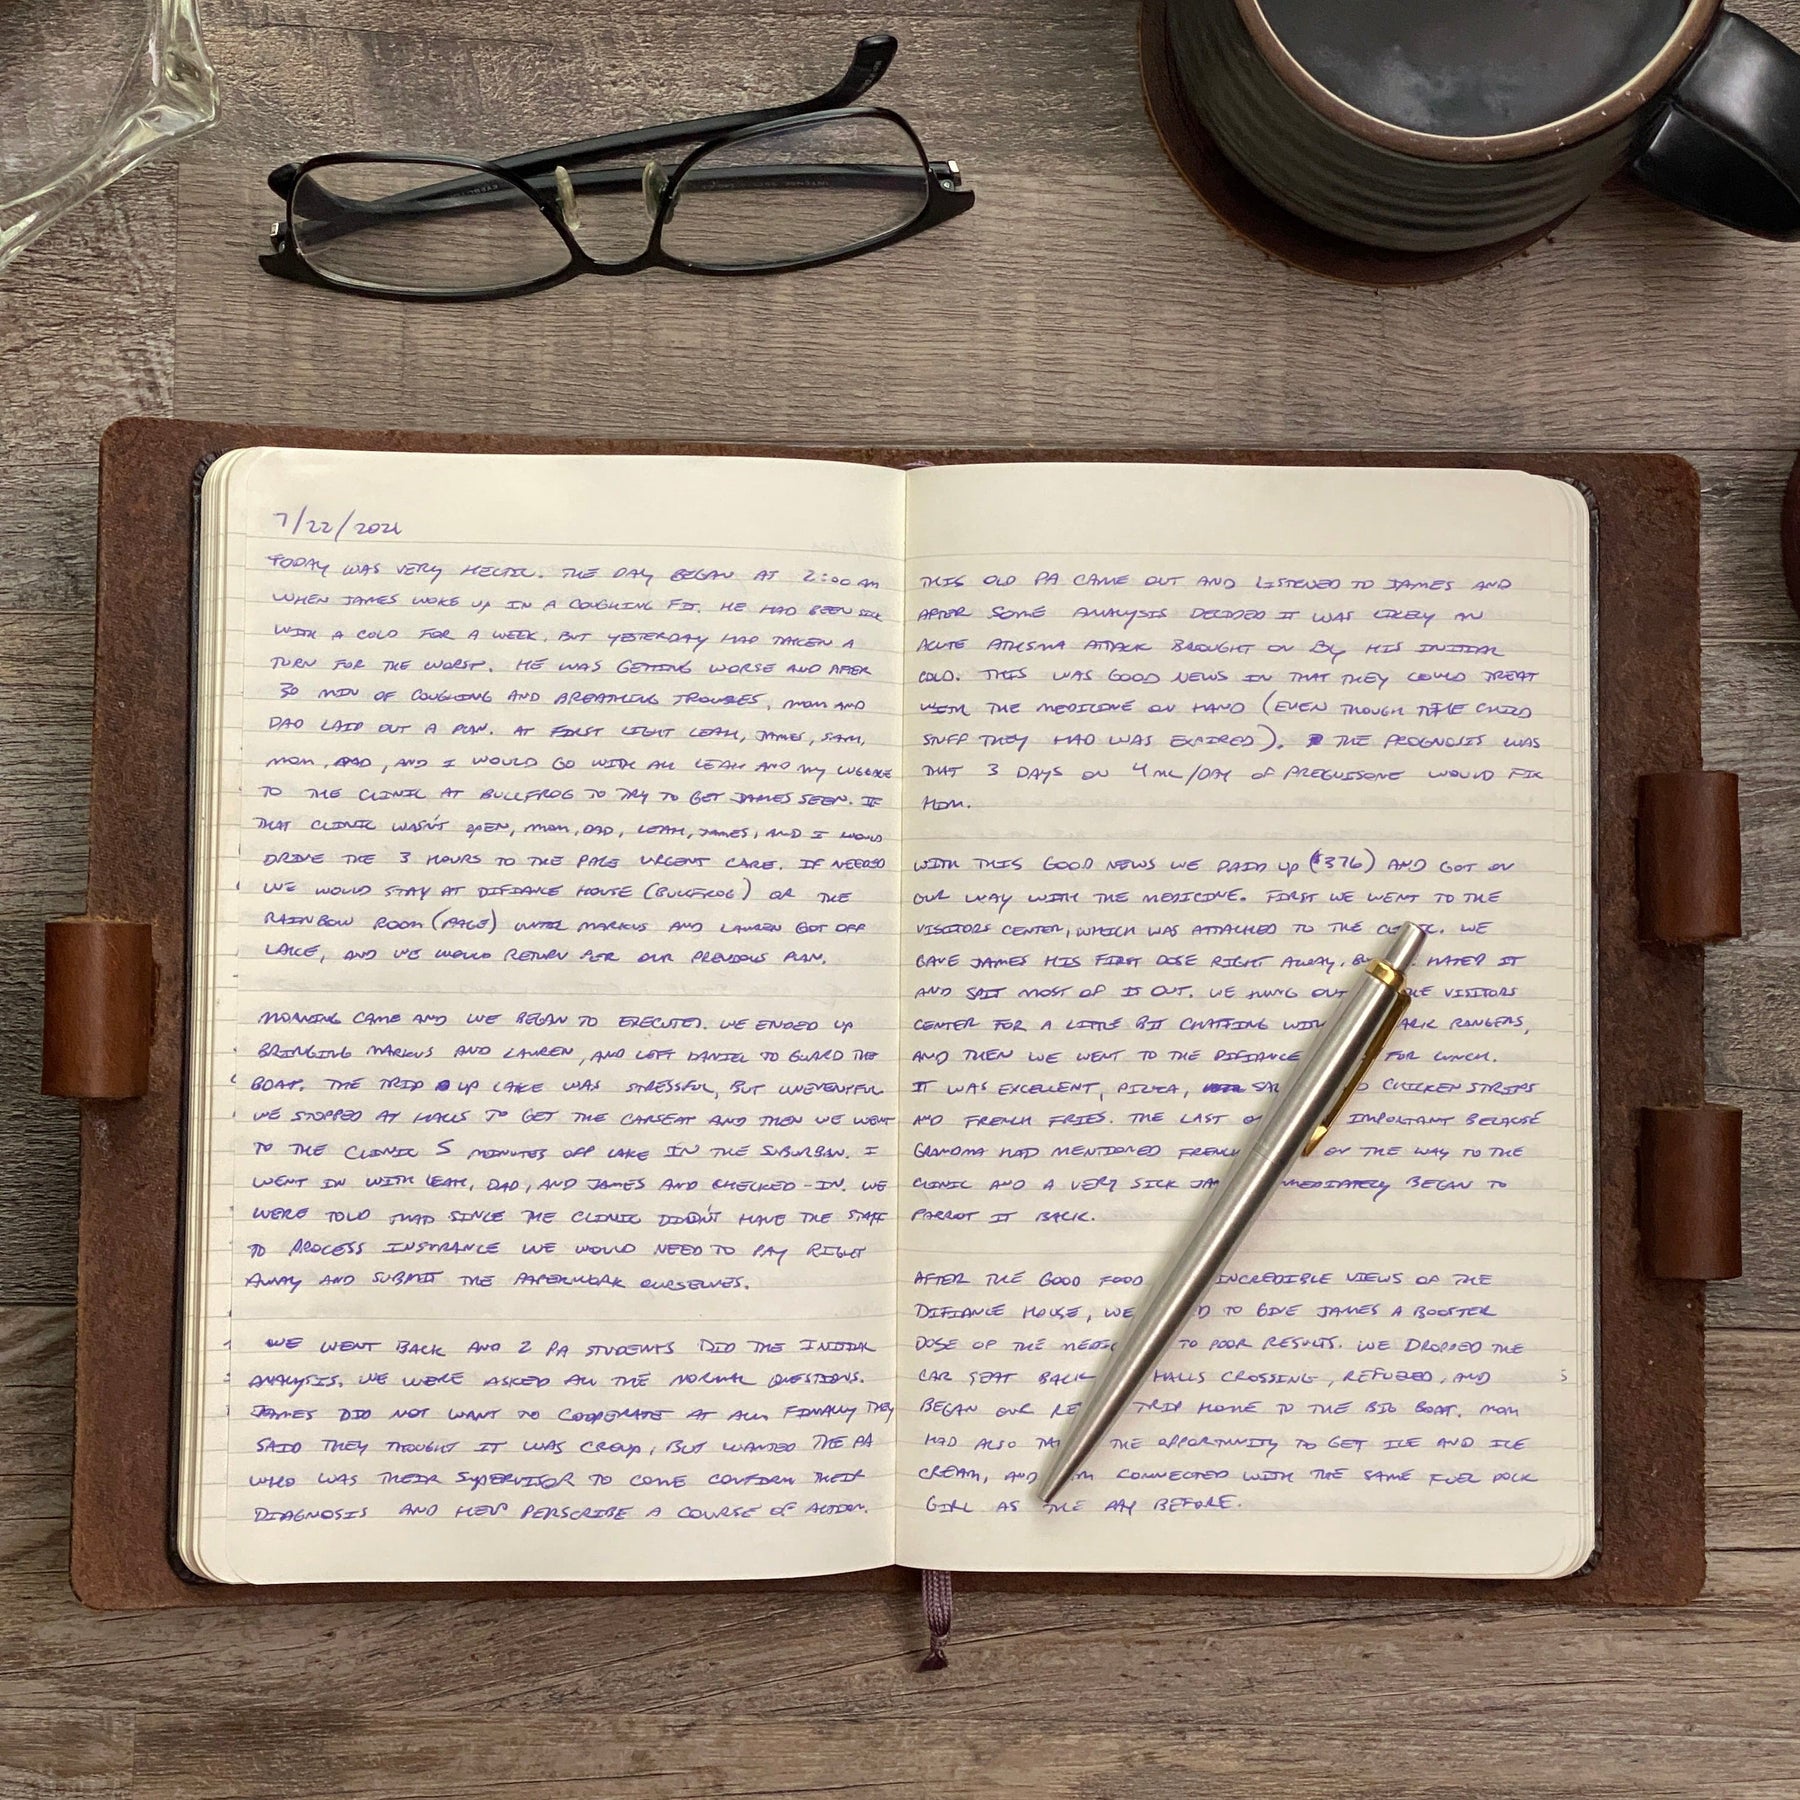 7/22/2021
TODAY WAS VERY HECTIC. THE DAY BEGAN AT 2:00 AM
WHEN JAMES WOKE UP IN A COUGHING FIT. HE HAD BEEN SICK
WITH A COLD FOR A WEEK, BUT YESTERDAY HAD TAKEN A
TURN FOR THE WORST. HE WAS GETTING WORSE AND AFTER
30 MIN OF COUGHING AND BREATHING TROUBLES, MOM AND
DAD LAID OUT A PLAN. AT FIRST LIGHT LEAH, JAMES, SAM,
MOM, DAD, AND I WOULD GO WITH ALL LEAH AND MY LUGGAGE
TO THE CLINIC AT BULLFROG TO TRY TO GET JAMES SEEN. IF
THAT CLINIC WASN'T OPEN, MOM, DAD, LEAH, JAMES, AND I WOULD
DRIVE THE 3 HOURS TO THE PAGE URGENT CARE. IF NEEDED
WE WOULD STAY AT DIFIANCE HOUSE (BULLFROG) OR THE
RAINBOW ROOM (PAGE) UNTIL MARKUS AND LAUREN GOT OFF
LAKE, AND WE WOULD RETURN PER OUR PREVIOUS PLAN.
MORNING CAME AND WE BEGAN TO EXECUTED. WE ENDED UP
BRINGING MARKUS AND LAUREN, AND LEFT DANIEL TO GUARD THE
BOAT. THE TRIP UP LAKE WAS STRESSFUL, BUT UNEVENTFUL
WE STOPPED AT HALLS TO GET THE CARSEAT AND THEN WE WENT
TO THE CLINIC 5 MINUTES OFF LAKE IN THE SUBURBAN. I
WENT IN WITH LEAH, DAD, AND JAMES AND CHECKED-IN. WE
WERE TOLD THAT SINCE THE CLINIC DIDN'T HAVE THE STAFF
TO PROCESS INSURANCE WE WOULD NEED TO PAY RIGHT
AWAY AND SUBMIT THE PAPERWORK OURSELVES.
WE WENT BACK AND 2 PA STUDENTS DID THE INITIAL
ANALYSIS. WE WERE ASKED ALL THE NORMAL QUESTIONS.
JAMES DID NOT WANT TO COOPERATE AT ALL. FINALLY THEY
SAID THEY THOUGHT IT WAS CROUP, BUT WANTED THE PA
WHO WAS THEIR SUPERVISOR TO COME CONFIRM THEIR
DIAGNOSIS AND HELP PERSCRIBE A COURSE OF ACTION.
THIS OLD PA CAME OUT AND LISTENED TO JAMES AND
AFTER SOME ANALYSIS DECIDED IT WAS LIKELY AN
ACUTE ATHSMA ATTACK BROUGHT ON BY HIS INITIAL
COLD. THIS WAS GOOD NEWS IN THAT THEY COULD TREAT
WITH THE MEDICINE ON HAND (EVEN THOUGH THE CHILD
STUFF THEY HAD WAS EXPIRED). THE PROGNOSIS WAS
THAT 3 DAYS ON 4 ML/DAY OF PREGUISONE WOULD FIX
HIM.
WITH THIS GOOD NEWS WE PAID UP ($376) AND GOT ON
OUR WAY WITH THE MEDICINE. FIRST WE WENT TO THE
VISITORS CENTER, WHICH WAS ATTACHED TO THE CL IC. WE
GAVE JAMES HIS FIRST DOSE RIGHT AWAY, B HATED IT
AND SPIT MOST OF IT OUT. WE HUNG OUT VISITORS
CENTER FOR A LITTLE BIT CHATTING WITH ARK RANGERS,
AND THEN WE WENT TO THE DIFIANCE FOR LUNCH.
IT WAS EXCELLENT, PIZZA, SAL D CHICKEN STRIPS
AND FRENCH FRIES. THE LAST O IMPORTANT BECAUSE
GRANDMA HAD MENTIONED FRENCH ON THE WAY TO THE
CLINIC AND A VERY SICK JA MEDIATELY BEGAN TO
PARROT IT BACK.
AFTER THE GOOD FOOD INCREDIBLE VIEWS OF THE
DIFIANCE HOUSE, WE D TO GIVE JAMES A BOOSTER
DOSE OF THE MEDIC TO POOR RESULTS. WE DROPPED THE
CAR SEAT BACK HALLS CROSSING, REFUELED, AND
BEGAN OUR RE TRIP HOME TO THE BIG BOAT. MOM
HAD ALSO TA THE OPPORTUNITY TO GET ICE AND ICE
CREAM, AND M CONNECTED WITH THE SAME FUEL DOCK
GIRL AS THE DAY BEFORE.